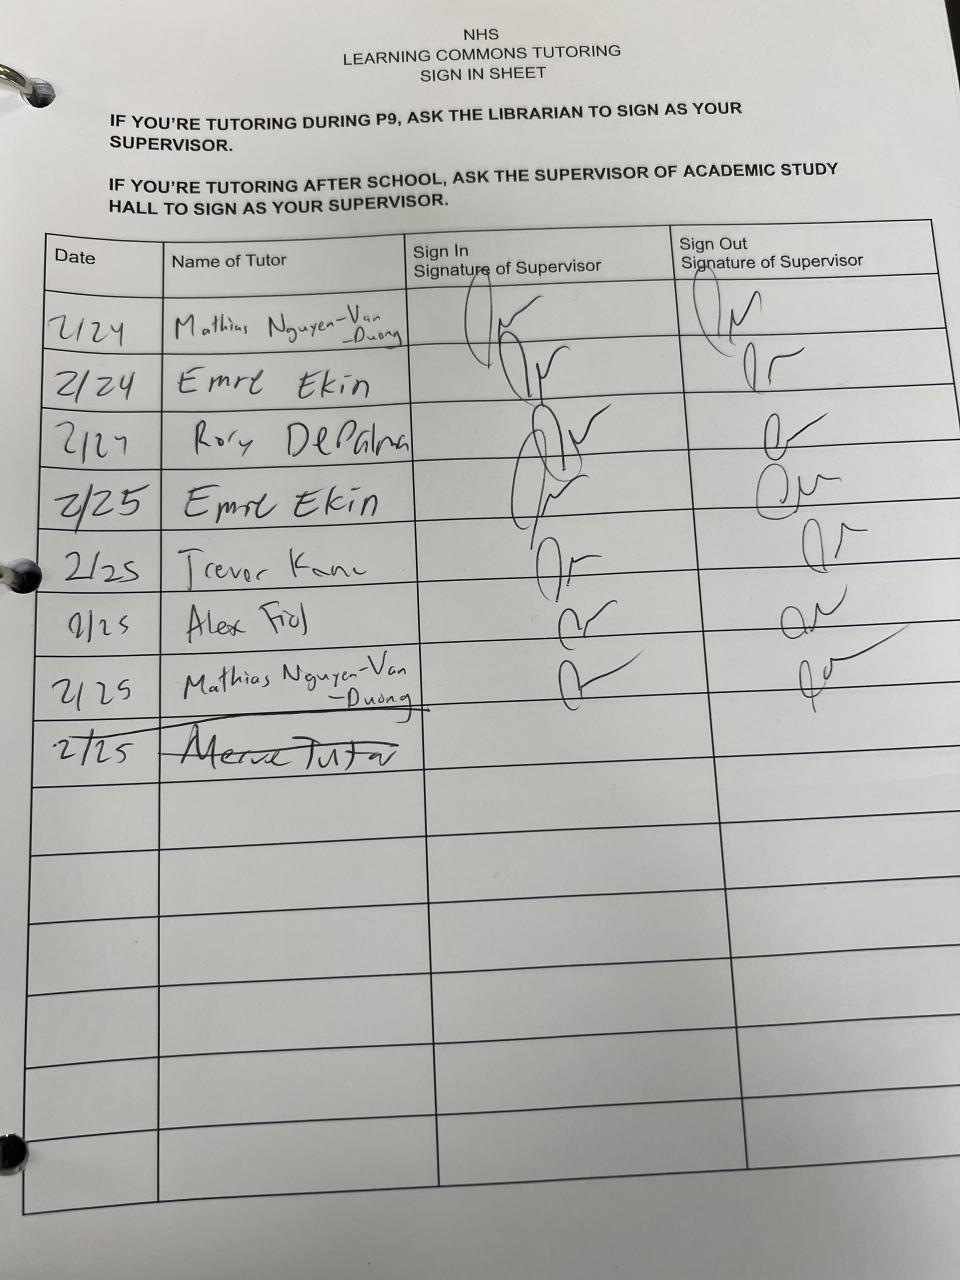 NHS
LEARNING COMMONS TUTORING
SIGN IN SHEET
IF YOU'RE TUTORING DURING P9, ASK THE LIBRARIAN TO SIGN AS YOUR
SUPERVISOR.
IF YOU'RE TUTORING AFTER SCHOOL, ASK THE SUPERVISOR OF ACADEMIC STUDY
HALL TO SIGN AS YOUR SUPERVISOR.
Date Name of Tutor Sign In Sign Out
Signature of Supervisor Signature of Supervisor
2/24 Mathias Nguyen-Van
-Duong
2/24 Emre Ekin
2/24 Rory DePalma
2/25 Emre Ekin
2/25 Trevor Kane
2/25 Alex Fiol
2/25 Mathias Nguyen-Van
-Duong
2/25 Merve